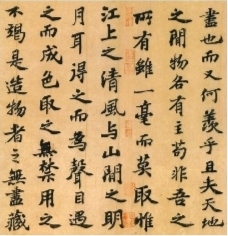 盡也而又何羨乎且夫天地
之間物各有主苟非吾之
所有雖一毫而莫取惟
江上之清風與山間之明
月耳得之而為聲目遇
之而成色取之無禁用之
不竭是造物者之無盡藏